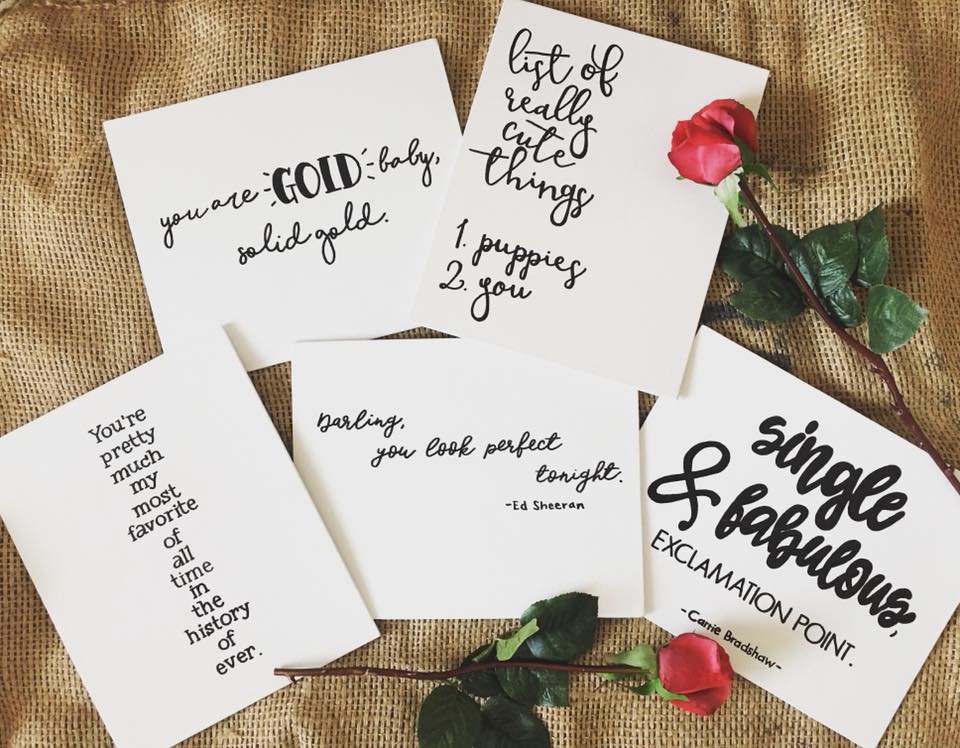 you are GOLD baby,
solid gold.
list of
really
cute
things
1. puppies
2. you
You're
pretty
much
my
most
favorite
of
all
time
in
the
history
of
ever.
Darling,
you look perfect
tonight.
-Ed Sheeran
single
& fabulous,
EXCLAMATION POINT.
-Carrie Bradshaw-